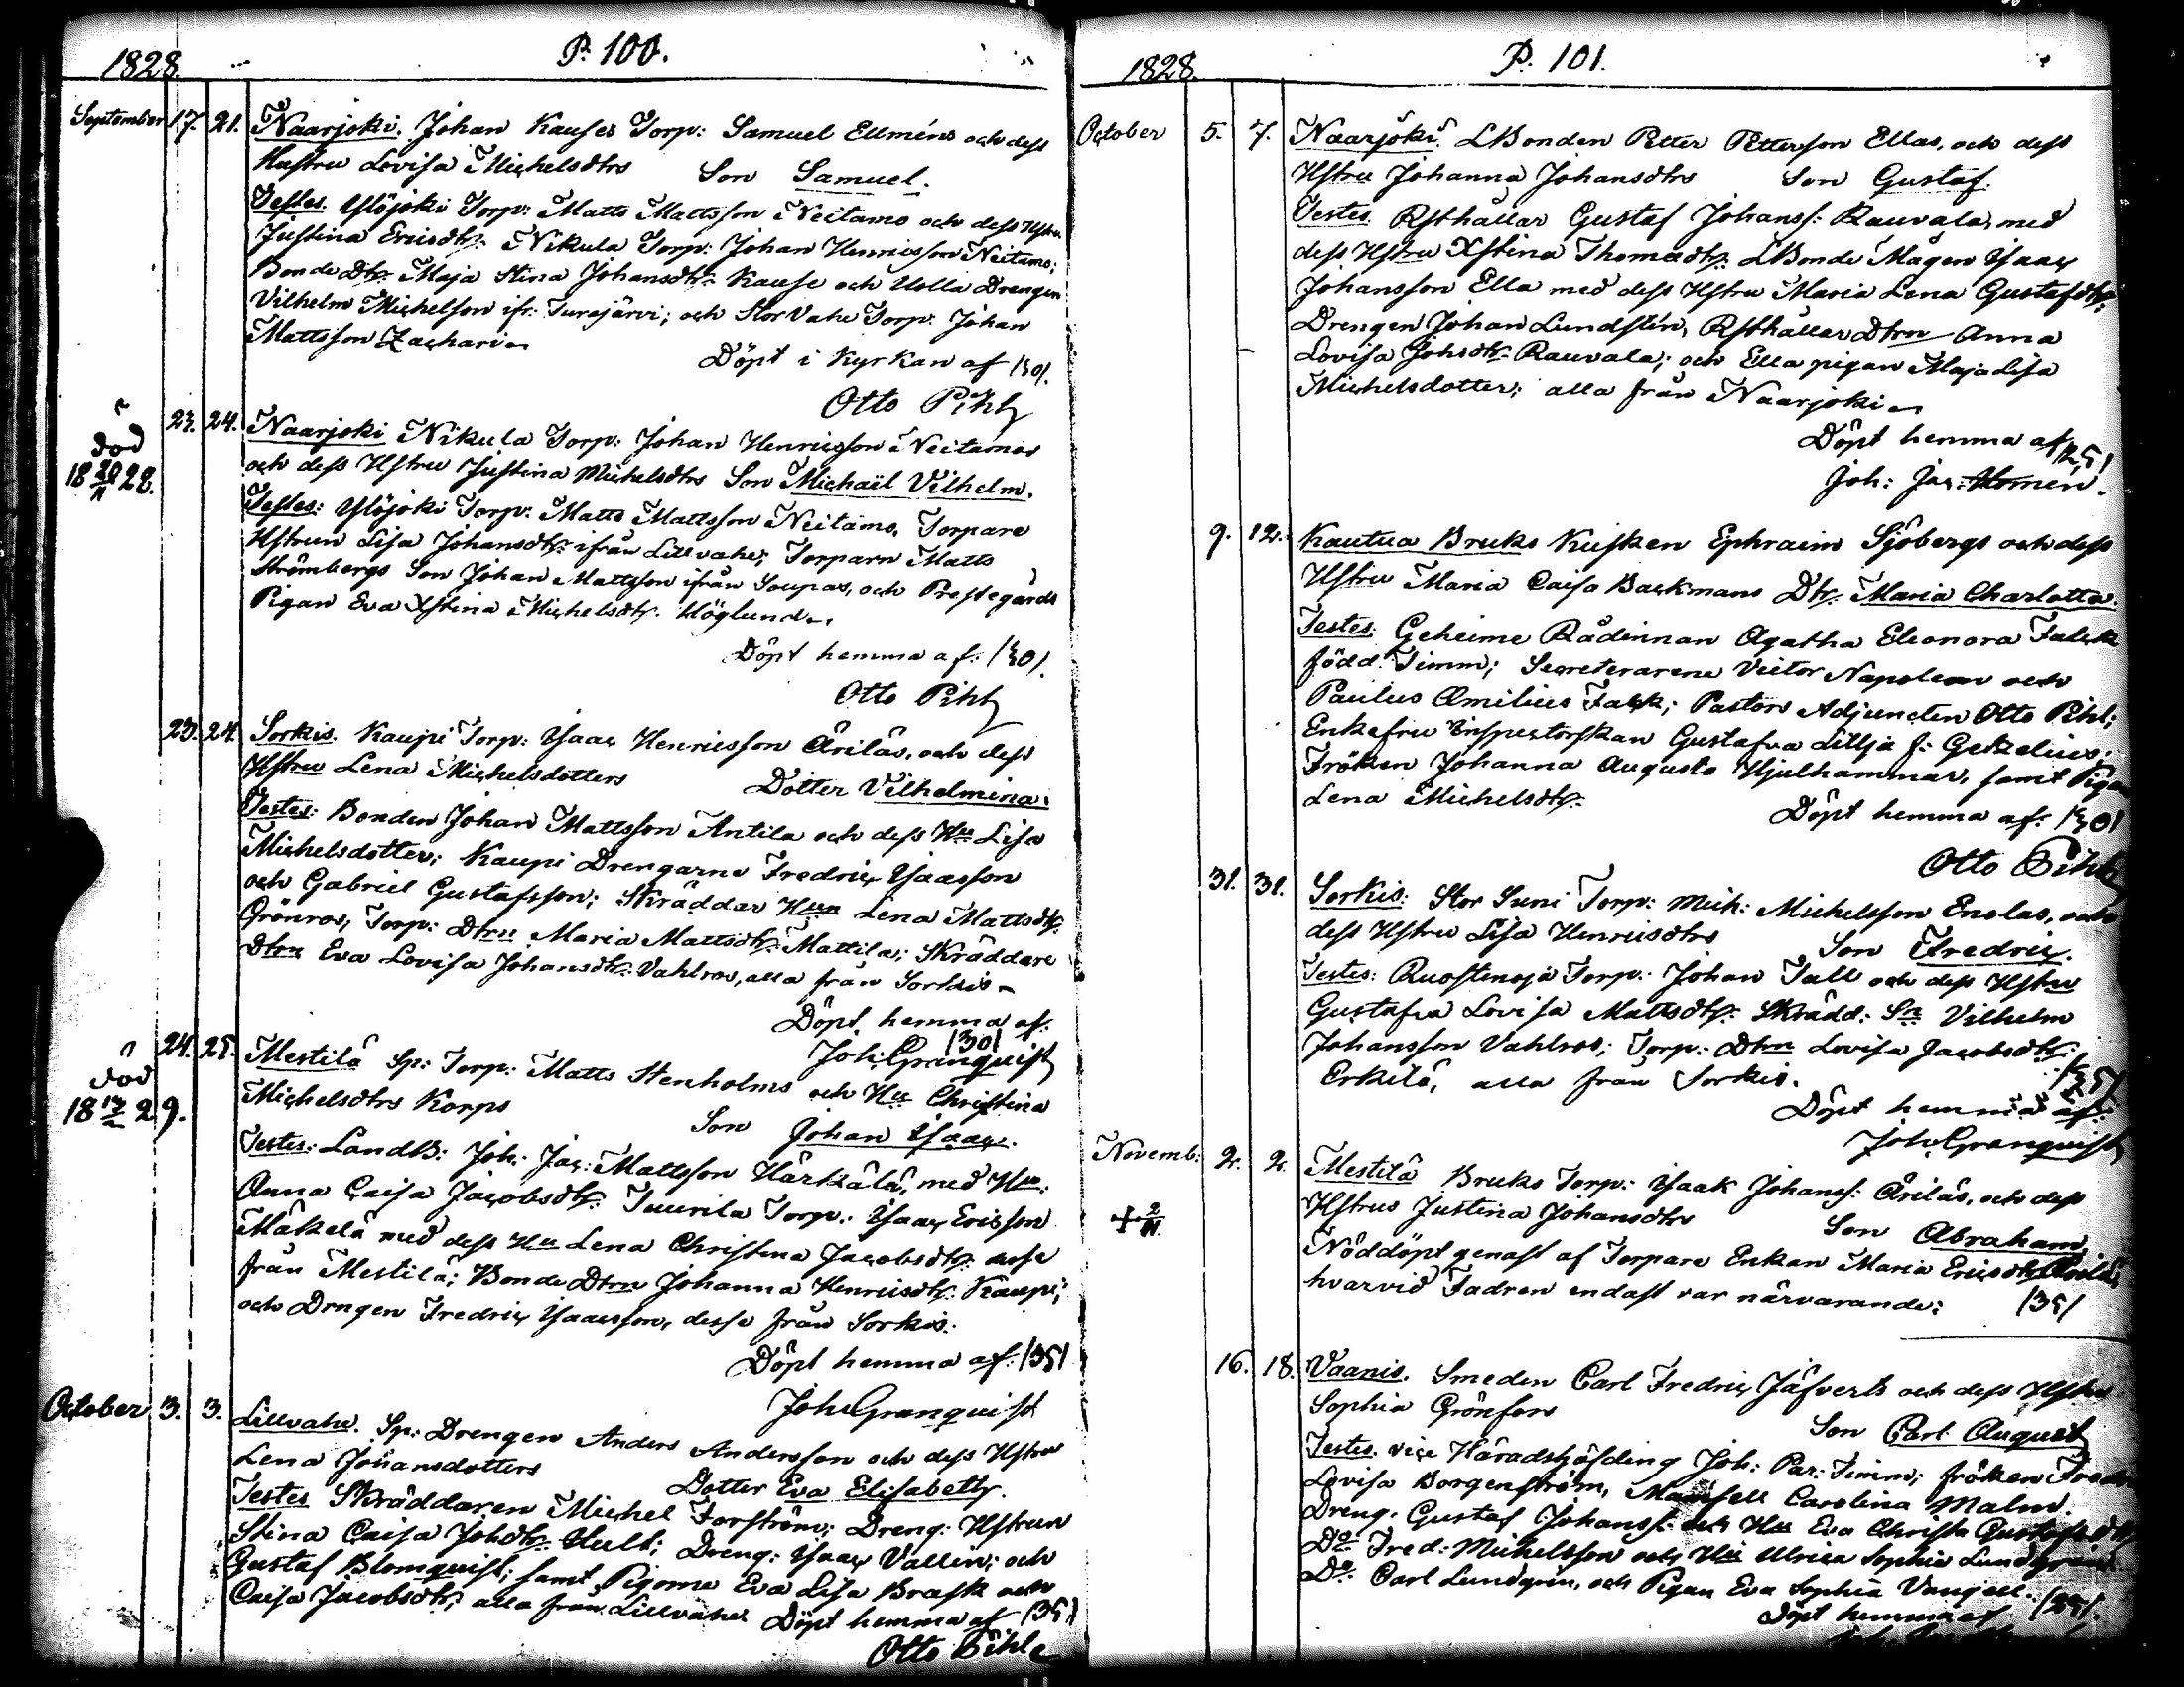 1828
P. 100.
September 17. 21. Naarjoki. Johan Kauses Torp: Samuel Ellméns och dess
Hustru Lovisa Michelsdtrs Son Samuel.
Testes. Ylöjoki Torp: Matts Mattsson Neitamo och dess Hstru
Justina Ericsdtr: Nikula Torp: Johan Henricsson Neitamo;
Bonde Dtr. Maja Stina Johansdtr. Kause och Uolla Drengen
Vilhelm Michelsson ifr: Turajärvi; och Stor Vahe Torp: Johan
Mattsson Zachari
Döpt i Kyrkan af /30/.
Otto Pihl
död
18 20/11 28.
23. 24. Naarjoki Nikula Torp: Johan Henricsson Neitamos
och dess Hstru Justina Michelsdtrs Son Michaël Vilhelm.
Testes: Ylöjoki Torp: Matts Mattsson Neitamo, Torpare
Hstrun Lisa Johansdtr. ifrån Lillvahe; Torparn Matts
Strömbergs Son Johan Mattsson ifrån Soupas, och Prestegårds
Pigan Eva Xstina Michelsdtr. Höglund.
Döpt hemma af: /30/.
Otto Pihl
23. 24. Sorkis. Kaupi Torp: Isaac Henricsson Ärilás, och dess
Hstru Lena Michelsdotters Dotter Vilhelmina.
Testes: Bonden Johan Mattsson Antila och dess Hu Lisa
Michelsdotter; Kaupi Drengarne Fredric Isacsson
och Gabriel Gustafsson; Skräddar Hun Lena Mattsdtr.
Grönros, Torp: Dtrn Maria Mattsdtr. Mattila; Skräddare
Dtrn Eva Lovisa Johansdtr. Vahlros, alla från Sorkis
Döpt hemma af:
/30/
Joh: Granquist
död
18 29.
24. 25. Mestilä Sp: Torp: Matts Stenholms och Hu Christina
Michelsdtrs Korps Son Johan Isaac.
Testes: LandB: Joh: Jac: Mattsson Härkälä, med Hu:
Anna Caisa Jacobsdtr. Tuurila Torp: Isaac Ericsson
Mäkelä med dess Hu Lena Christina Jacobsdtr.
från Mestilä; Bonde Dtrn Johanna Henricsdtr. Kaupi;
och Drngen Fredric Isacsson, desse från Sorkis.
Döpt hemma af: /35/
Joh: Granquist
October 3. 3. Lillvahe. Sp: Drengen Anders Andersson och dess Hstru
Lena Johansdotters Dotter Eva Elisabeth.
Testes Skräddaren Michel Forström; Dreng: Hstrun
Stina Caisa Johdtr. Hult; Dreng: Isaac Vallin; och
Gustaf Blomquist; samt Pigorne Eva Lisa Brask och
Caisa Jacobsdtr, alla från Lillvahe. Döpt hemma af /35/
Otto Pihl
1828.
P. 101.
October 5. 7. Naarjoki. LBonden Petter Petterson Ellas, och dess
Hstru Johanna Johansdtrs Son Gustaf.
Testes. Rsthållar Gustaf Johanss: Rauvala, med
dess Hstru Xstina Thomadtr. LBonde Mågen Isaac
Johansson Ella med dess Hstru Maria Lena Gustafdtr.
Drengen Johan Lundstén, Rsthållar Dtrn Anna
Lovisa Johsdtr. Rauvala; och Ella pigan Maja Lisa
Michelsdotter; alla från Naarjoki
Döpt hemma af
Joh: Jac: Homén.
9. 12. Kautua Bruks Kusken Ephraim Sjöbergs och dess
Hstru Maria Caisa Backmans Dtr. Maria Charlotta.
Testes: Geheime Rådinnan Agatha Eleonora Falck
född Timm; Secreterarene Victor Napoleon och
Paulus Æmilius Falck; Pastors Adjuncten Otto Pihl;
Enkefru Inspectorskan Gustafva Lillja f: Getzelius;
Fröken Johanna Augusta Hjulhammar, samt Pigan
Lena Michelsdtr. Döpt hemma af: /30/
Otto Pihl
31. 31. Sorkis: Stor Suni Torp: Mich: Michelsson Enolas, och
dess Hstru Lisa Henricsdtrs Son Fredric.
Testes: Ruostenoja Torp: Johan Tall och dess Hstru
Gustafva Lovisa Mattsdtr. Skrädd: Sn Vilhelm
Johansson Vahlros; Torp: Dtrn Lovisa Jacobsdtr:
Erkilä, alla från Sorkis.
Döpt hemma af:
Joh: Granquist
Novemb: 2. 2. Mestilä Bruks Torp: Isaak Johanss: Ärilás, och dess
Hstrus Justina Johansdtrs Son Abraham
+ 2/11.
Nöddöpt genast af Torpare Enkan Maria Ericsdtr
hvarvid Fadren endast var närvarande: /35/
16. 18. Vaanis. Smeden Carl Fredric Jäfverts och dess Hstru
Sophia Grönfors Son Carl August
Testes. vice Häradshöfding Joh: Par: Timm; fröken
Lovisa Borgenström, Mamsell Carolina Malm.
Dreng. Gustaf Johanss: och Hu Eva Christa Gustafsdtr
Do Fred: Michelsson och Hu Ulrica Sophia
Do Carl Lundgrén, och Pigan Eva Sophia Vangell.
Döpt hemma af /35/.